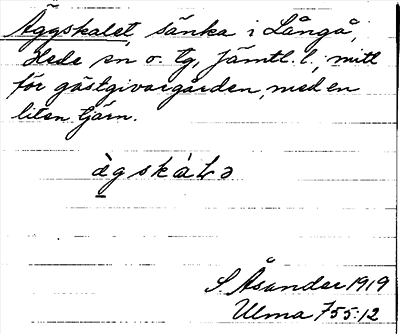 Äggskalet, sänka i Långå,
Hede sn o. tg, Jämtl. l., mitt
för gästgivargården, med en
liten tjärn.
ägskàLə
S. Åsander 1919
Ulma 755:12